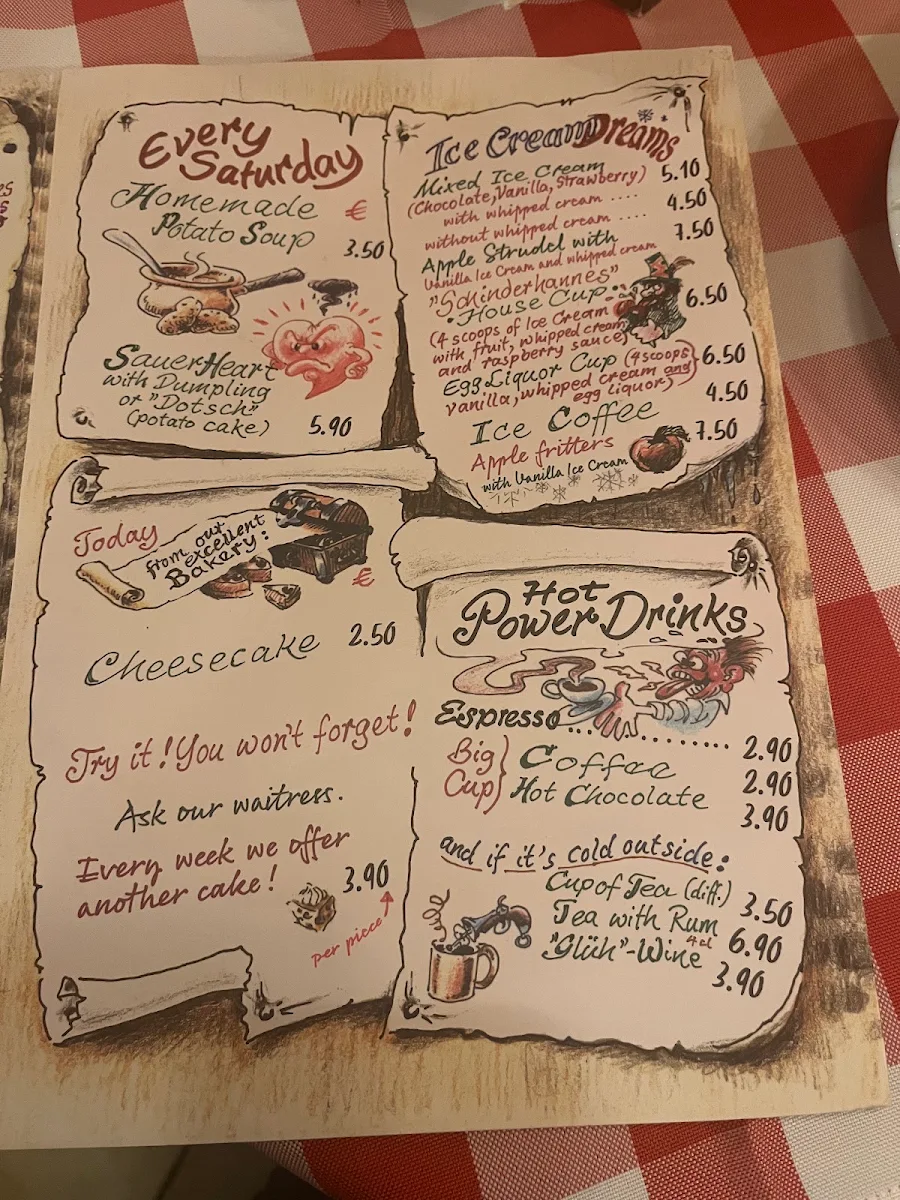 Every
Saturday
Homemade €
Potato Soup 3.50
SauerHeart
with Dumpling
or "Dotsch"
(potato cake) 5.90
Ice Cream Dreams
Mixed Ice Cream
(Chocolate, Vanilla, Strawberry) 5.10
with whipped cream ....
without whipped cream .... 4.50
Apple Strudel with 7.50
Vanilla Ice Cream and whipped cream
"Schinderhannes"
House Cup: 6.50
(4 scoops of Ice Cream
with fruit, whipped cream
and raspberry sauce)
Egg Liquor Cup (4 scoops 6.50
vanilla, whipped cream and
egg liquor)
Ice Coffee 4.50
Apple fritters 7.50
with Vanilla Ice Cream
Today
from our
excellent
Bakery:
€
Cheesecake 2.50
Try it! You won't forget!
Ask our waitress.
Every week we offer
another cake! 3.90
per piece
Hot
Power Drinks
Espresso............ 2.90
Big Cup Coffee 2.90
Hot Chocolate 3.90
and if it's cold outside:
Cup of Tea (diff.) 3.50
Tea with Rum 4cl 6.90
"Glüh"-Wine 3.90